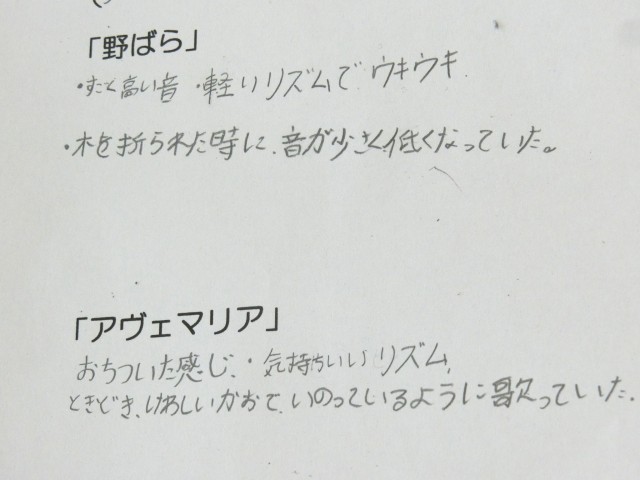 「野ばら」
・すごく高い音 ・軽いリズムで ウキウキ.
・木を折られた時に、音が少さく、低くなっていた。
「アヴェマリア」
おちついた感じ、・気持ちいいリズム、
ときどき、けわしいかおで、いのっているように歌っていた.